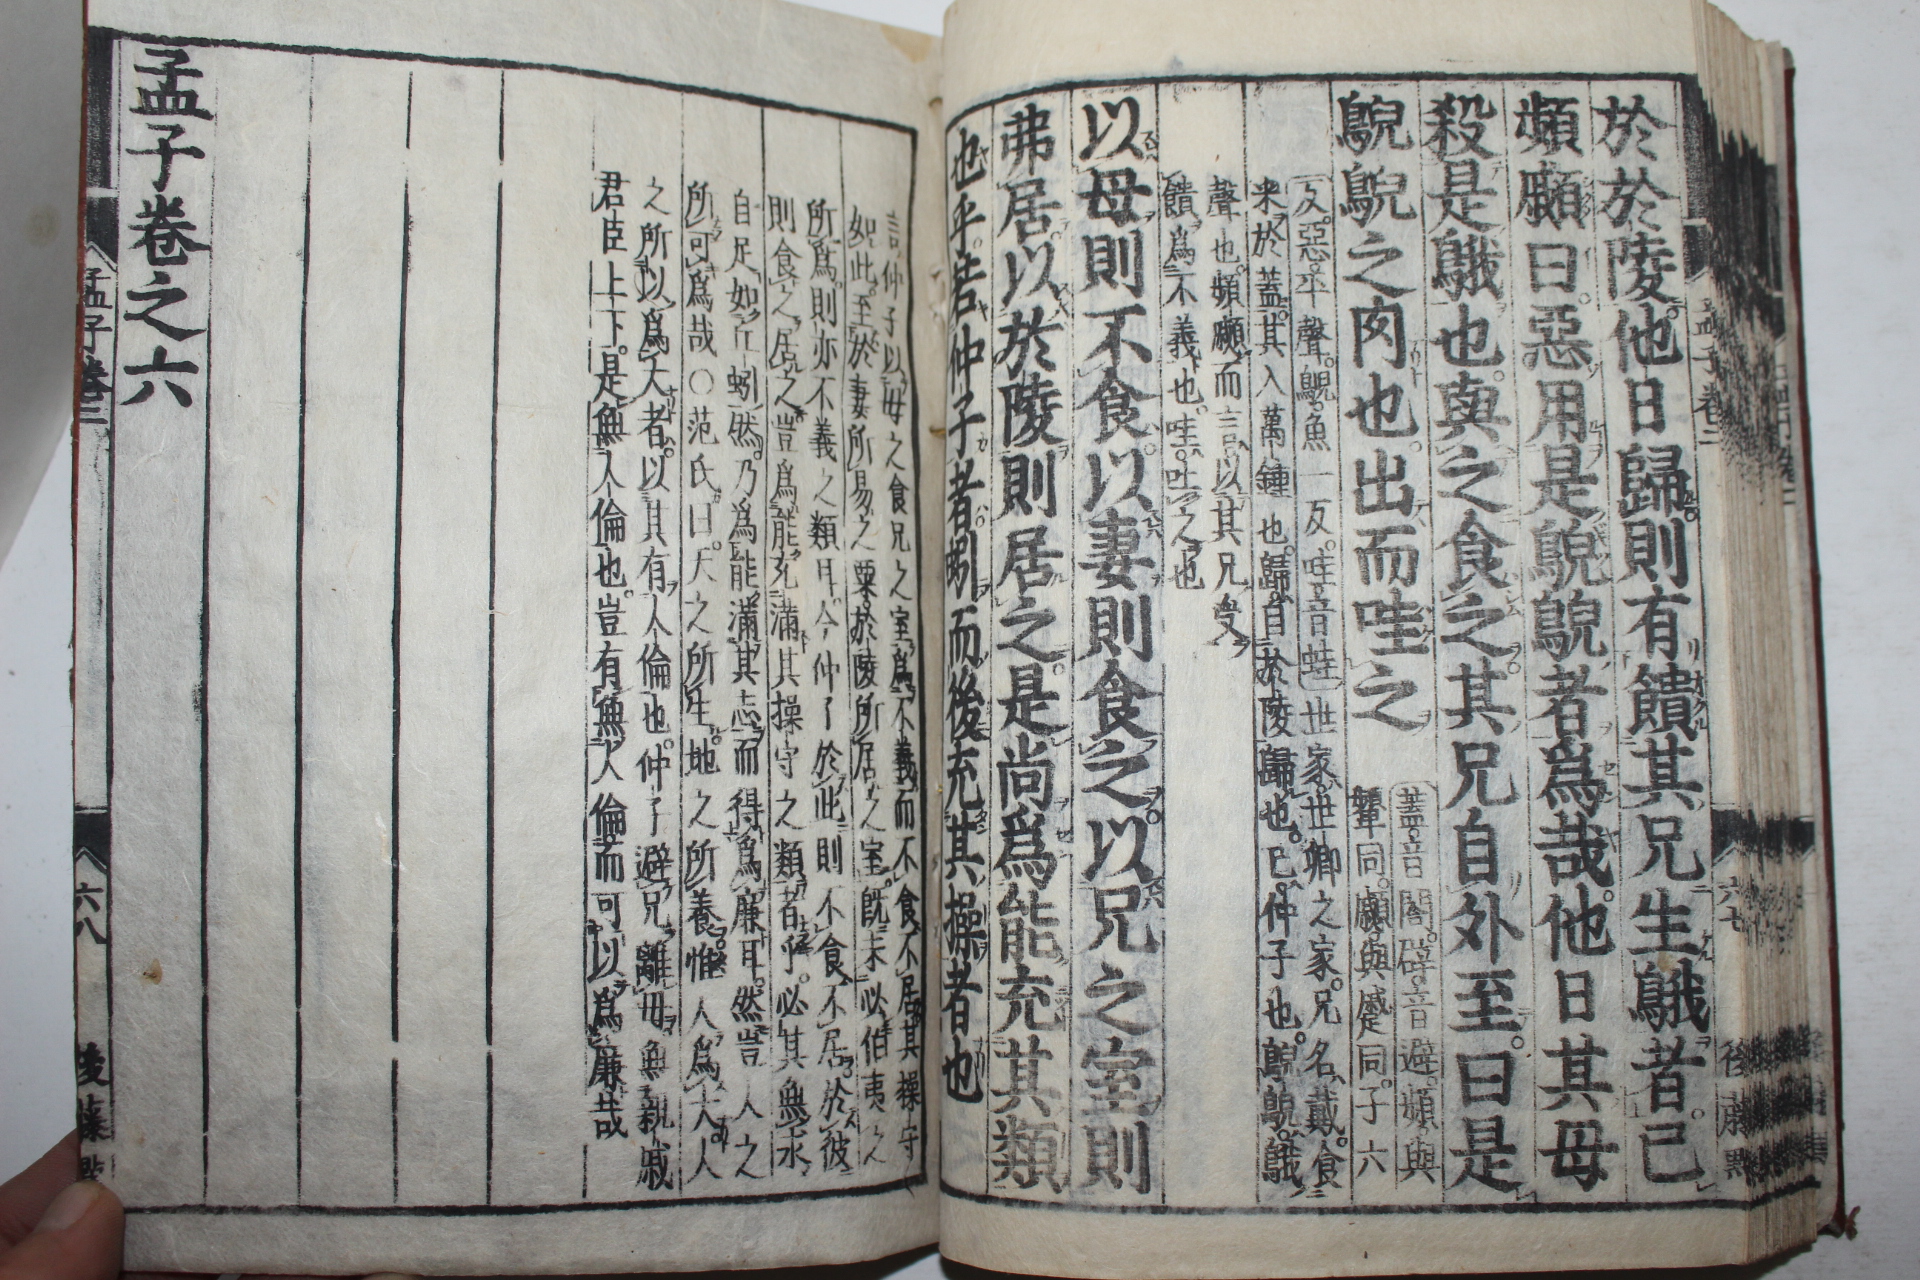 於於陵他日歸則有饋其兄生鵝者己
頻顣曰惡用是鶃鶃者爲哉他日其母
殺是鵝也與之食之其兄自外至曰是
鶃鶃之肉也出而哇之
蓋音閤辟音避頻與
顰同顣與蹙同子六
反惡平聲鶃魚一反哇音蛙世家世卿之家兄名戴食
采於蓋其入萬鍾也歸自於陵歸也己仲子也鶃鶃鵝
聲也頻顣而言以其兄受
饋爲不義也哇吐之也
以母則不食以妻則食之以兄之室則
弗居以於陵則居之是尚爲能充其類
也乎若仲子者蚓而後充其操者也
言仲子以母之食兄之室爲不義而不食不居其操守
如此至於妻所易之粟於陵所居之室既未必伯夷之
所爲則亦不義之類耳今仲子於此則不食不居於彼
則食之居之豈爲能充滿其操守之類者乎必其無求
自足如丘蚓然乃爲能滿其志而得爲廉耳然豈人之
所可爲哉○范氏曰天之所生地之所養惟人爲大人
之所以爲大者以其有人倫也仲子避兄離母無親戚
君臣上下是無人倫也豈有無人倫而可以爲廉哉
孟子卷之六
孟子卷三
六八
後藤點
孟子卷三
六七
後藤點